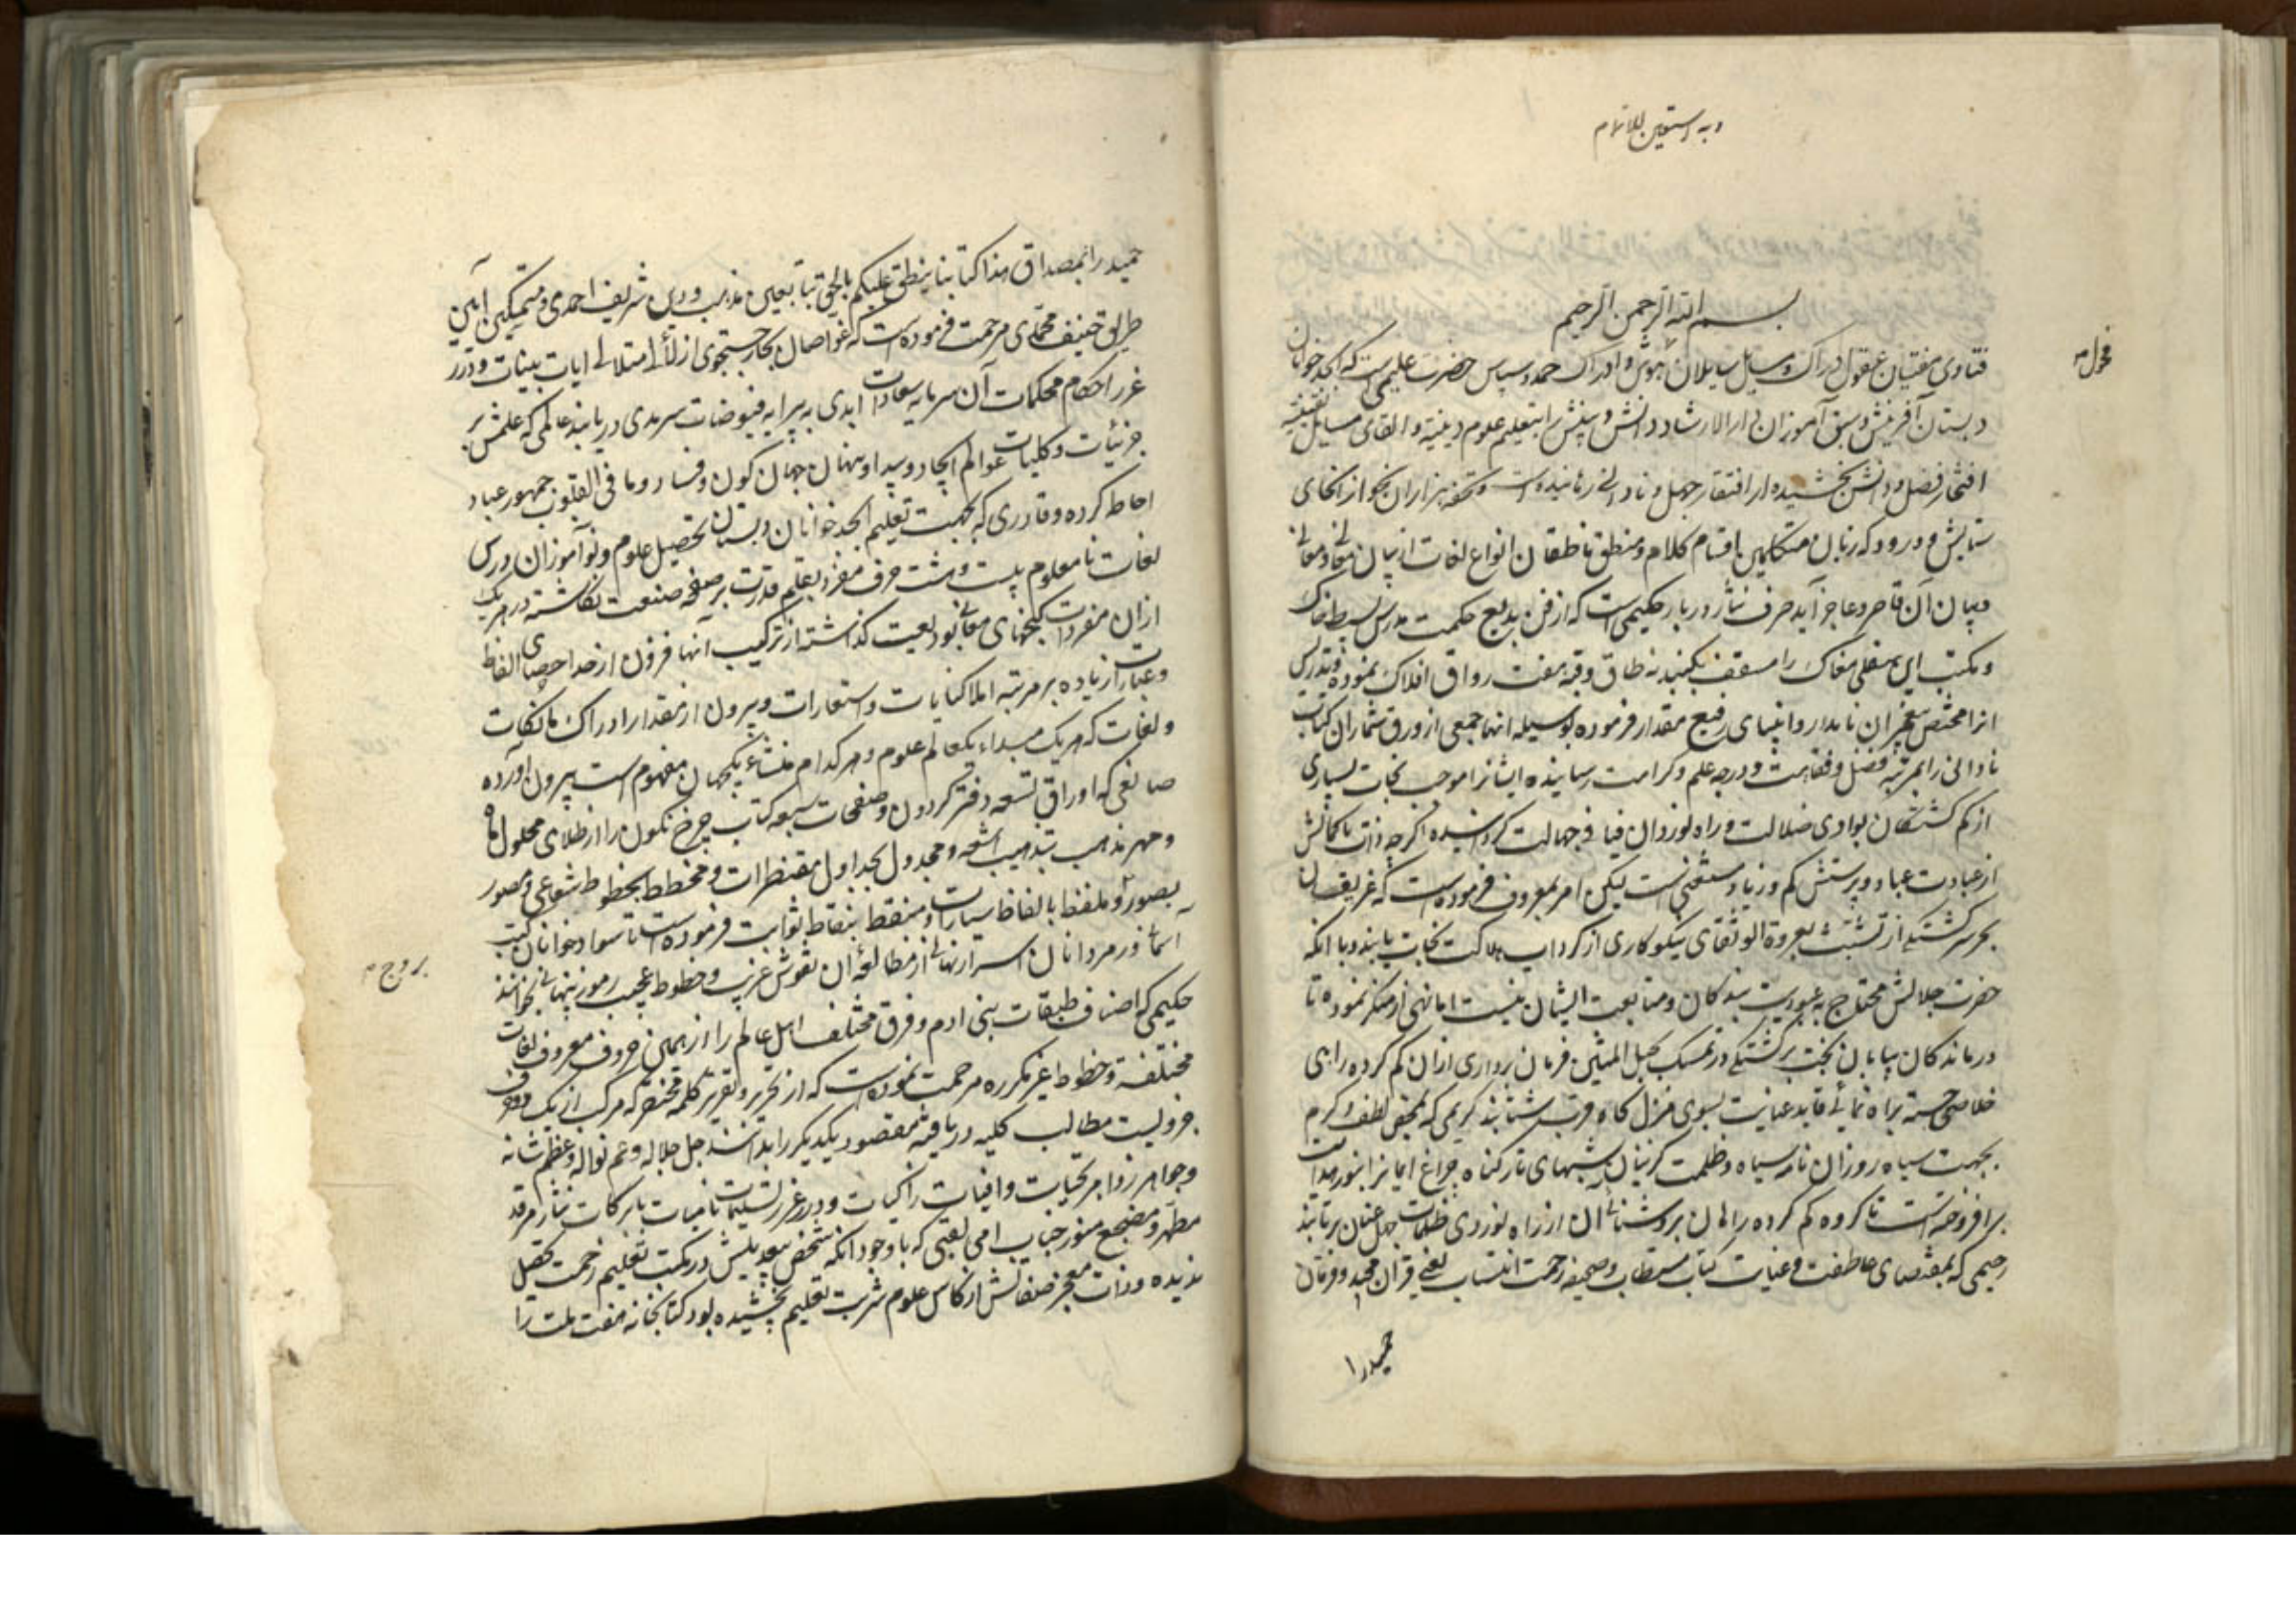 وبه استعین للاتمام
بسم الله الرحمن الرحیم
فحول م
فتاوی مفتیان عقول ادراک و مسایل سایلان هوش و ادراک حمد و سپاس حضرت علیمی است که ابجد خوانان
دبستان آفرینش و سبق آموزان دار الارشاد دانش و بینش را بتعلیم علوم دینیه و القای مسایل یقینیه
افتخار فضل و دانش بخشیده از افتقار جهل و نادانی رهانیده است و تحفه هزاران نحو از انحای
ستایش و درود که زبان متکلمین باقسام کلام و منطق ناطقان انواع لغات از بیان معانی
و بیان آن قاصر و عاجز آید صرف نثار دربار حکیمی است که از فن بدیع حکمت مدرس بسیط خاک
و مکتب این سفلی مغاک را مسقف بگنبد نه طاق وقبه هفت رواق افلاک نموده و تدریس
انرا مختص پیغمبران نامدار و انبیای رفیع مقدار فرموده بوسیله انها جمعی از ورق شماران کتاب
نادانی را بمرتبه فضل و فقاهت و درجه علم و کرامت رسانیده ایشانرا موجب نجات بسیاری
از گم گشتگان بوادی ضلالت و راه نوردان فیافی جهالت گردانیده اگرچه ذات با کمالش
از عبادت عباد و پرستش کم و زیاد مستغنی است لیکن امر بمعروف فرموده است که غریقان
بحر سرگشتگی از تشبث بعروة الوثقای نیکوکاری از گرداب هلاکت نجات یابند و با انکه
حضرت جلالش محتاج به عبودیت بندگان و متابعت ایشان نیست اما نهی از منکر نموده تا
درماندگان بیابان بخت برگشتگی در تمسک بحبل المتین فرمان برداری ازان گم کرده راهی
خلاصی جسته براه نمائی قاید عنایت بسوی منزلگاه قرب شتابند کریمی که بمحض لطف و کرم
بجهت سیاه روزان نامه سیاه و ظلمت گزینان شبهای تار گناه چراغ ایمانرا بنور هدایت
برافروخته است تا گروه گم کرده راهان بروشنائی آن از راه نوردی ظلمات جهل عنان برتابند
رحیمی که بمقتضای عاطفت و عنایت کتاب مستطاب و صحیفه رحمت انتساب یعنی قران مجید و فرقان
حمید را
حمید را بمصداق هذا کتابنا ینطق علیکم بالحق بتابعین مذهب و دین شریف احمدی و متمسکین آیین
طریق حنیف محمدی مرحمت فرموده است که غواصان بحار جستجوی از لآلی متلالی ایات بینات و درر
غرر احکام محکمات آن سرمایه سعادت ابدی به پیرایه فیوضات سرمدی دریابند عالمی که علمش بر
جزئیات و کلیات عوالم ایجاد و پیدا و پنهان جهان کون و فساد و ما فی القلوب جمهور عباد
احاطه کرده و قادری که بجهت تعلیم ابجد خوانان دبستان تحصیل علوم و نوآموزان درس
لغات نامعلوم بیست و هشت حرف مفرد بقلم قدرت بر صفحه صنعت نگاشته در هریک
ازان مفردات گنجهای معانی بودیعت گذاشته از ترکیب آنها فزون از حد احصای الفاظ
و عبارات زیاده بر مرتبه املا کنایات و استعارات و بیرون از مقدار ادراک نکات
و لغات که هریک مبداء یکعالم علوم و هرکدام منشاء یکجهان مفهوم است بیرون آورده
صانعی که اوراق تسعه دفتر گردون و صفحات سبعه کتاب چرخ نگون را از طلای محلول ماه
و مهر مذهب بتذهیب اشعه و مجدول بجداول مقنطرات و مخطط بخطوط شعاعی و مصور
بصور و ملفظ بالفاظ سیارات و منقط بنقاط ثوابت فرموده است تا سواد خوانان کتب
بروج م
آسمانی و رمز دانان اسرار نهانی از مطالعه آن نقوش غریب و خطوط عجیب رموز پنهانی بخوانند
حکیمی که اصناف طبقات بنی ادم و فرق مختلف اهل عالم را از همین حروف معروف لغات
مختلفه و خطوط غیر مکرره مرحمت نموده است که از تحریر و تقریر کلمه مختصر که مرکب از یک دو حرف
جزویست مطالب کلیه دریافته مقصود یکدیگر را بدانند جل جلاله و عم نواله و عظم شانه
و جواهر زواهر تحیات وافیات زاکیات و درر غرر تسلیمات نامیات بابرکات نثار مرقد
مطهر و مضجع منور جناب امی لقبی که با وجود انکه شخص بیعدیلش در مکتب تعلیم زحمت تحصیل
ندیده و ذات معجز صفاتش از کاس علوم شربت تعلیم نچشیده بود کتابخانه هفت ملت را